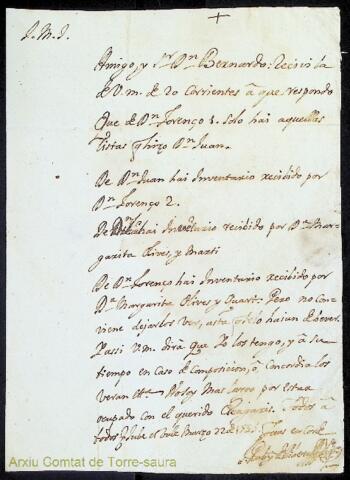 J.M.J.
Amigo, y Sr. Dn. Bernardo: Recivi la
de V.m. de 20 Corrientes â que respondo
Que de Dn. Lorenço 1. Solo hai aquellas
listas q hizo Dn. Juan.
De Dn. Juan hai Inventario recibido por
Dn. Lorenço 2.
De hai Inventario recibido por Da. Mar-
garita Olives, y Marti
De Dn. Lorenço hai Inventario recibido por
Da. Margarita Olives y Pero no con-
viene dejarlos ver, asta
V.m. dirà que Yo los tengo, y â su
tiempo en Caso de Composicion, ô Concordia los
veran por estar
ocupado con el querido â
todos Marzo 22 de
Arxiu Comtat de Torre-saura